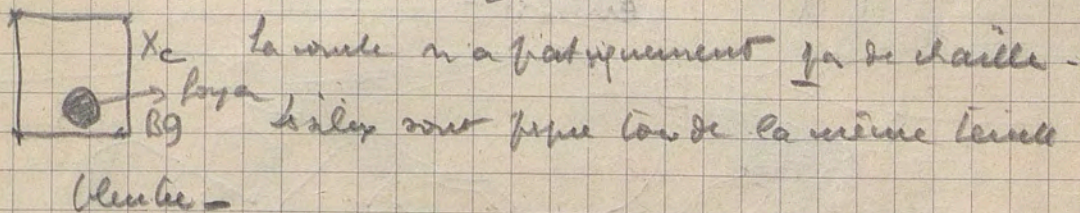 Xc La couche n'a pratiquement pas de chaille -
foyer
B9 Les silex sont presque tous de la même teinte
bleutée -